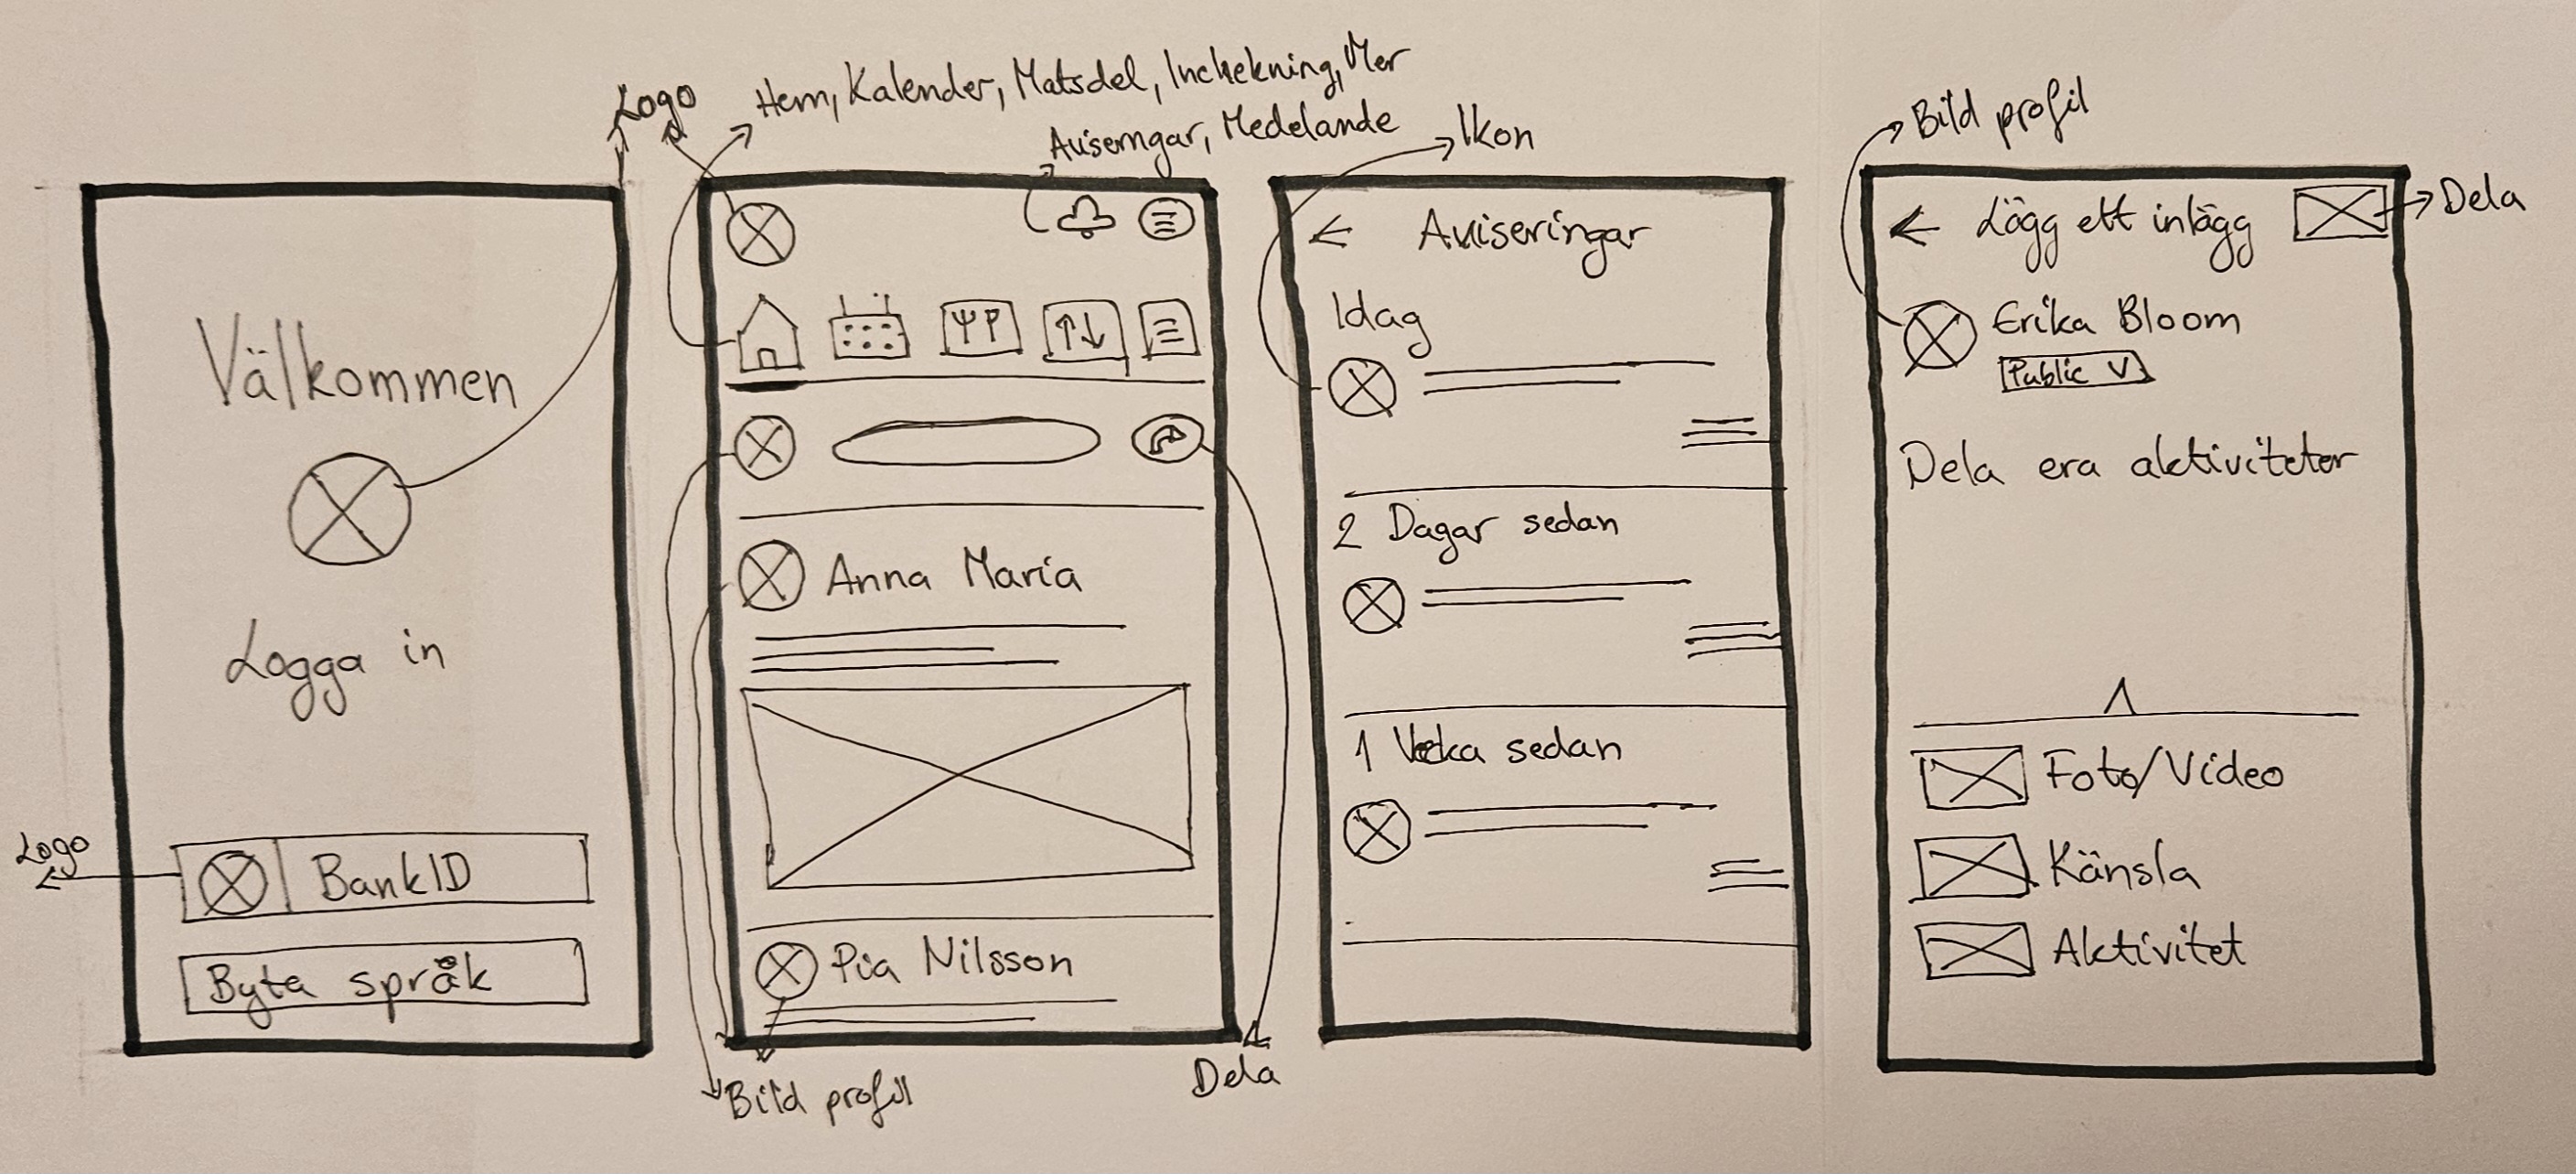 Logo
Hem, Kalender, Matsdel, Inchekning, Mer
Aviserngar, Medelande
Välkommen
Logga in
Logo
BankID
Byta språk
Anna Maria
Pia Nilsson
Bild profil
Dela
Ikon
Aviseringar
Idag
2 Dagar sedan
1 Vecka sedan
Bild profil
Lägg ett inlägg
Dela
Erika Bloom
Public V
Dela era aktiviteter
Foto/Video
Känsla
Aktivitet